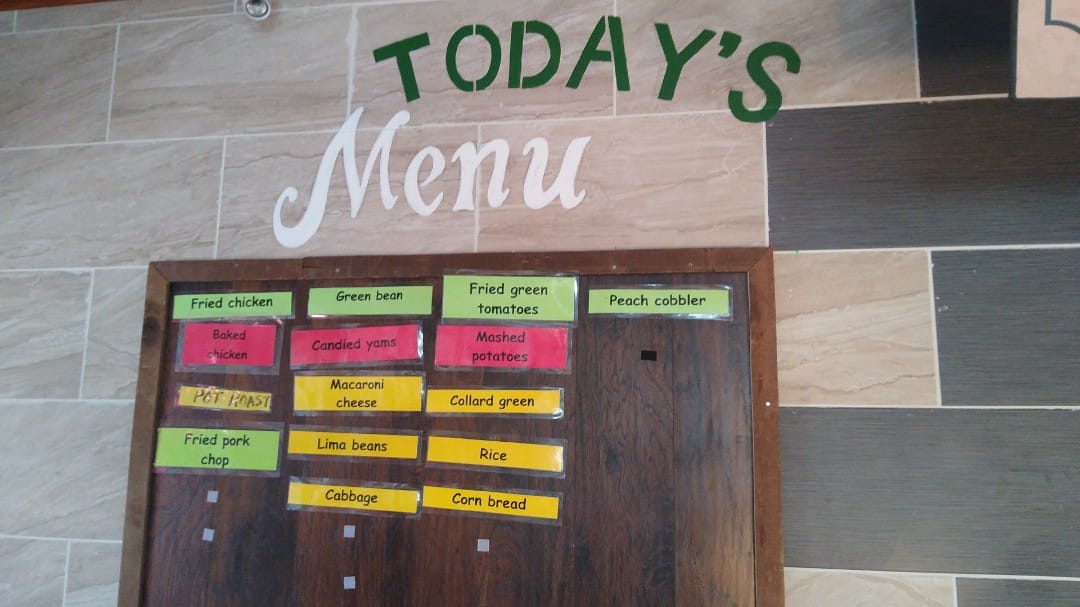 TODAY'S
Menu
Fried chicken
Baked
chicken
POT ROAST
Fried pork
chop
Green bean
Candied yams
Macaroni
cheese
Lima beans
Cabbage
Fried green
tomatoes
Mashed
potatoes
Collard green
Rice
Corn bread
Peach cobbler